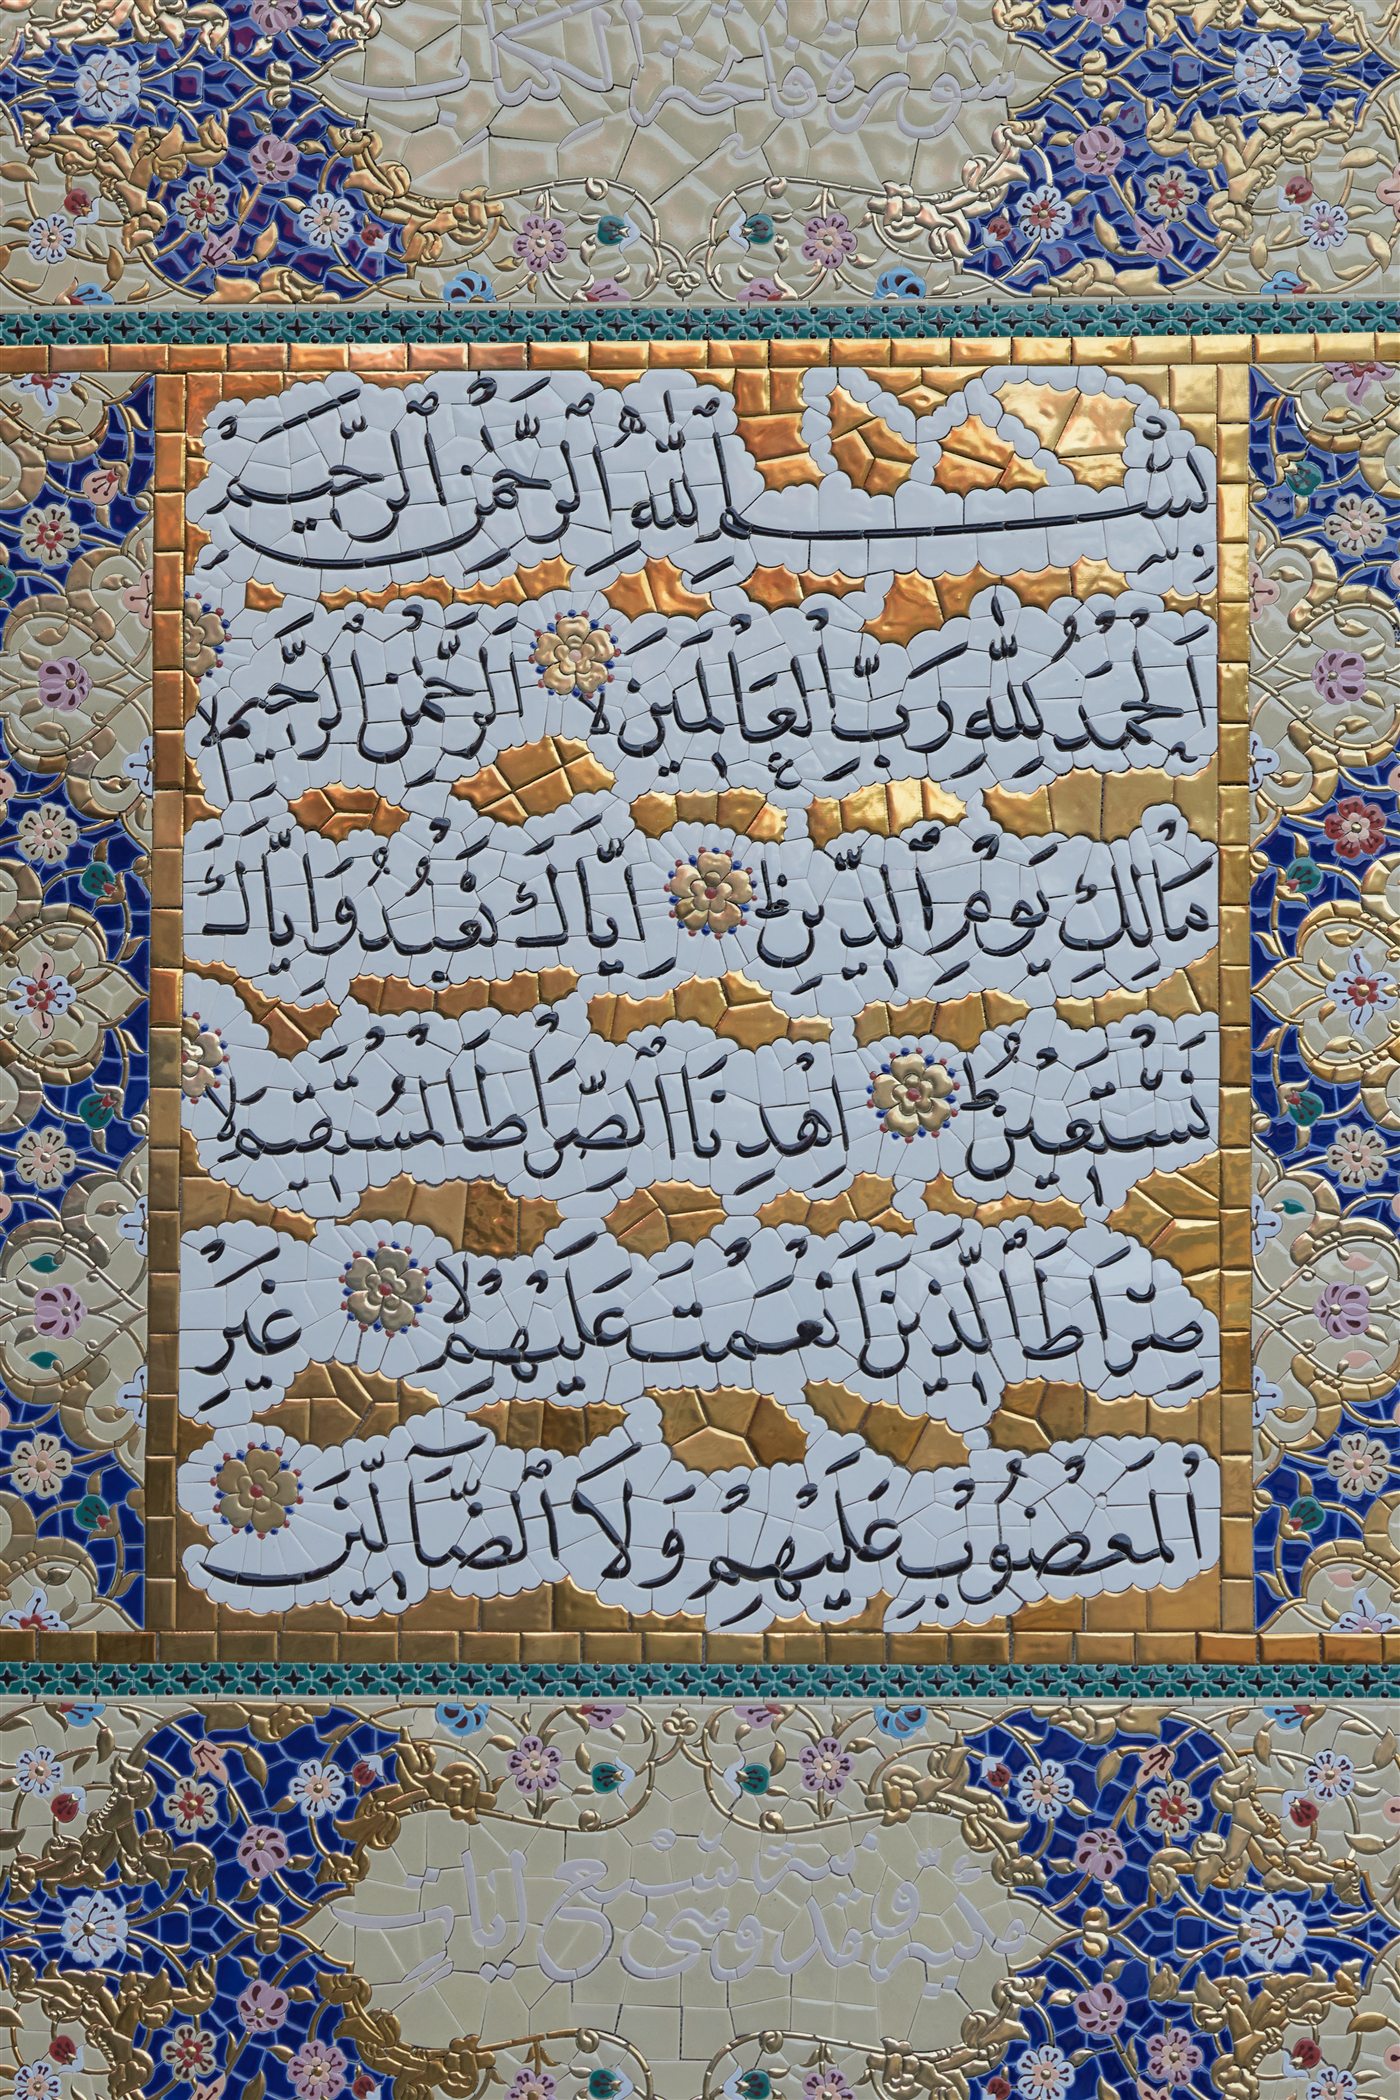 سُورَةُ فَاتِحَةِ الكِتَابِ
بِسْمِ اللّٰهِ الرَّحْمٰنِ الرَّحِيمِ
اَلْحَمْدُ لِلّٰهِ رَبِّ الْعَالَمِينَ ۙ اَلرَّحْمٰنِ الرَّحِيمِ ۙ
مَالِكِ يَوْمِ الدِّينِ ۜ اِيَّاكَ نَعْبُدُ وَاِيَّاكَ
نَسْتَعِينُ ۜ اِهْدِنَا الصِّرَاطَ الْمُسْتَقِيمَ ۙ
صِرَاطَ الَّذِينَ اَنْعَمْتَ عَلَيْهِمْ ۙ غَيْرِ
الْمَغْضُوبِ عَلَيْهِمْ وَلَا الضَّٓالِّينَ
مكيّة و مدنيّة وهى سبع ايات